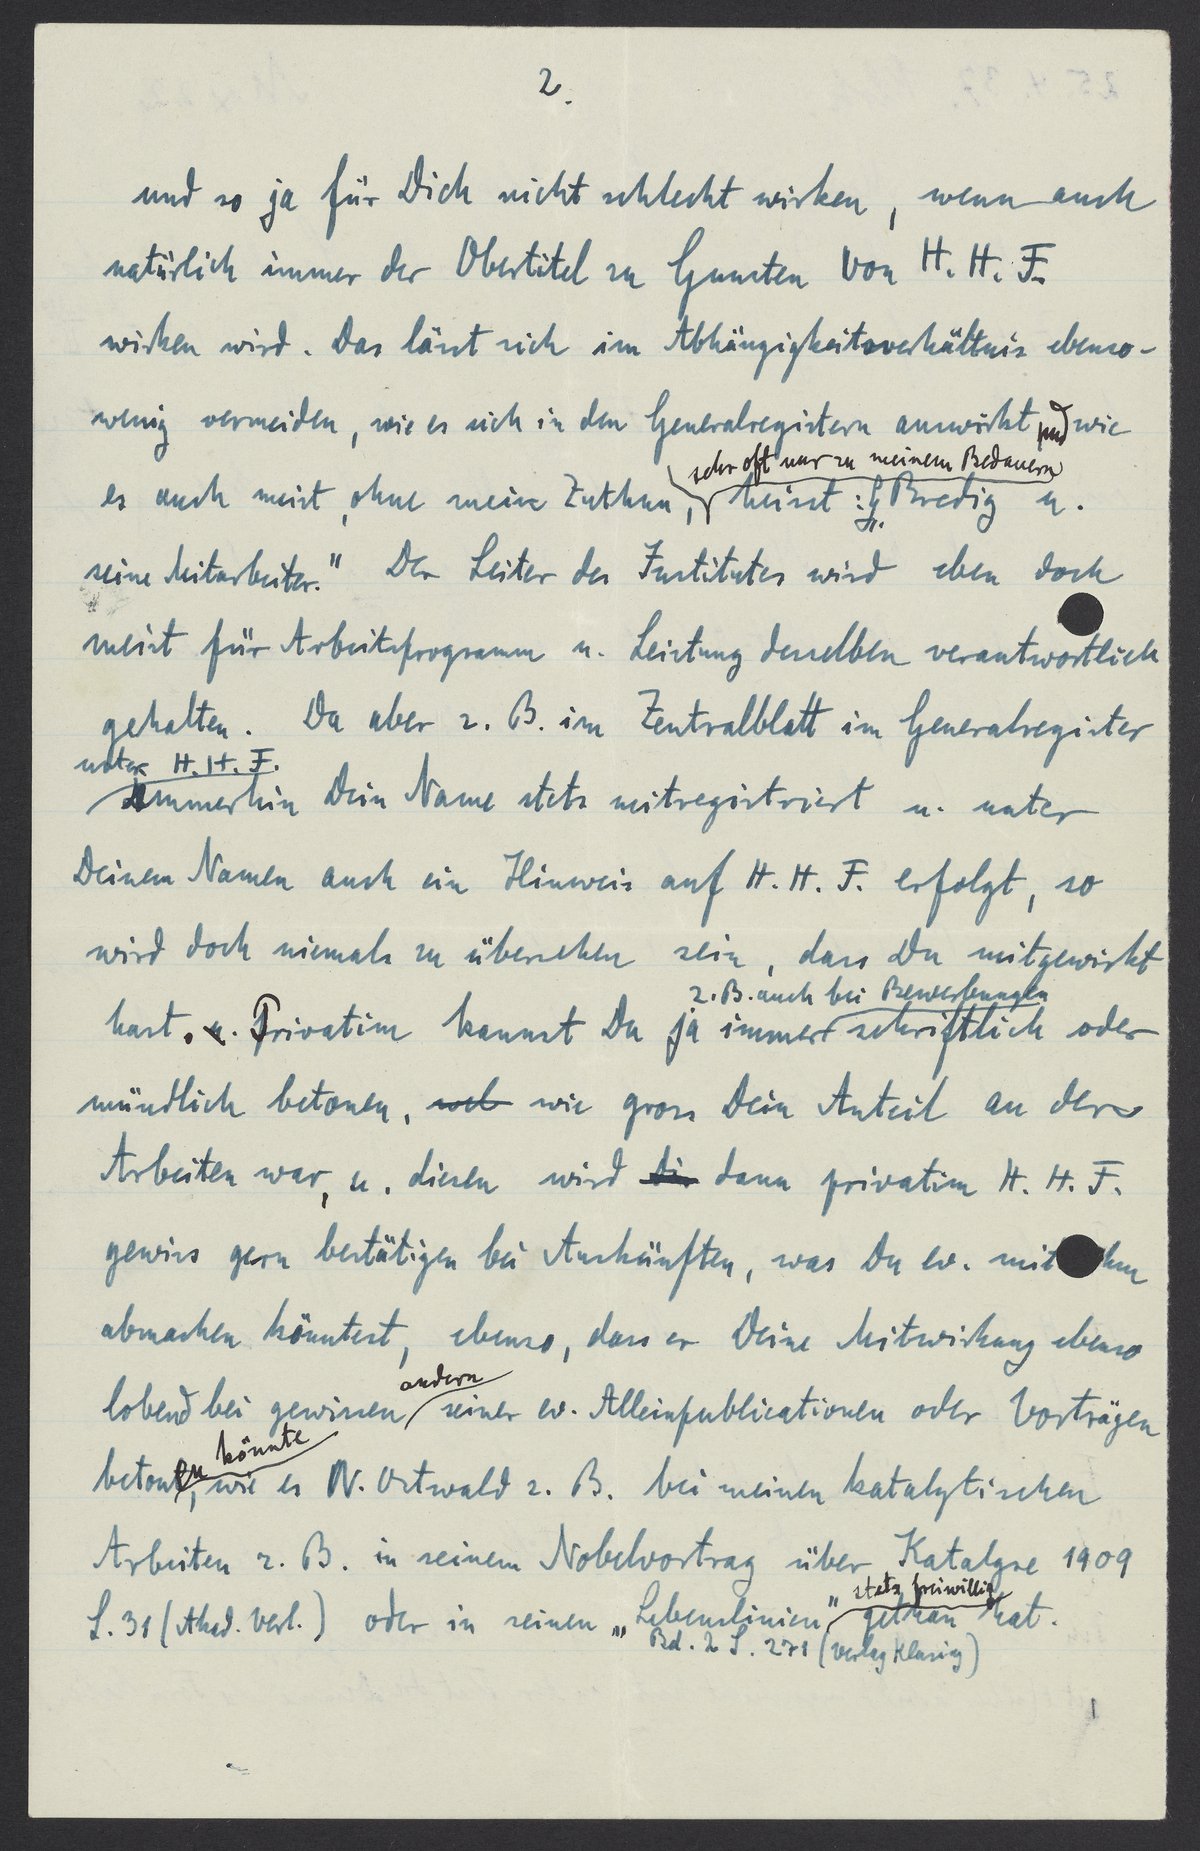 2.
und so ja für Dich nicht schlecht wirken, wenn auch
natürlich immer der Obertitel zu Gunsten von H. H. F.
wirken wird. Das lässt sich im Abhängigkeitsverhältnis ebenso-
wenig vermeiden, wie es sich in den Generalregistern auswirkt und wie
sehr oft nur zu meinem Bedauern
es auch meist, ohne mein Zuthun, heisst: „G. Bredig u.
seine Mitarbeiter." Der Leiter des Institutes wird eben doch
meist für Arbeitsprogramm u. Leistung desselben verantwortlich
gehalten. Da aber z. B. im Zentralblatt im Generalregister
unter H. H. F.
immerhin Dein Name stets mitregistriert u. unter
Deinem Namen auch ein Hinweis auf H. H. F. erfolgt, so
wird doch niemals zu übersehen sein, dass Du mitgewirkt
z. B. auch bei Bewerbungen
hast. u. Privatim kannst Du ja immer schriftlich oder
mündlich betonen, wel wie gross Dein Anteil an der
Arbeiten war, u. diesen wird Dir dann privatim H. H. F.
gewiss gern bestätigen bei Auskünften, was Du ev. mit ihm
abmachen könntest, ebenso, dass er Deine Mitwirkung ebenso
andern
lobend bei gewissen seiner ev. Alleinpublicationen oder Vorträgen
en könnte
betont, wie es W. Ostwald z. B. bei meinen katalytischen
Arbeiten z. B. in seinem Nobelvortrag über Katalyse 1909
stets freiwillig
S. 31 (Akad. Verl.) oder in seinen „Lebenslinien" gethan hat.
Bd. 2 S. 271 (Verlag Klasing)
1